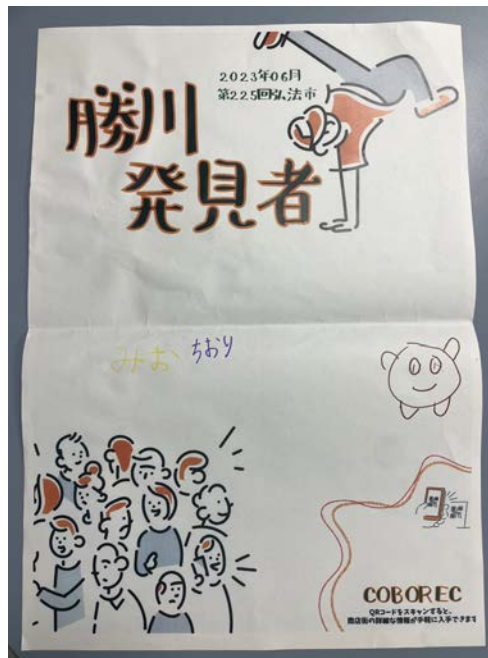 2023年06月
第225回弘法市
勝川
発見者
みお ちおり
COBOREC
QRコードをスキャンすると、
商店街の詳細な情報が手軽に入手できます